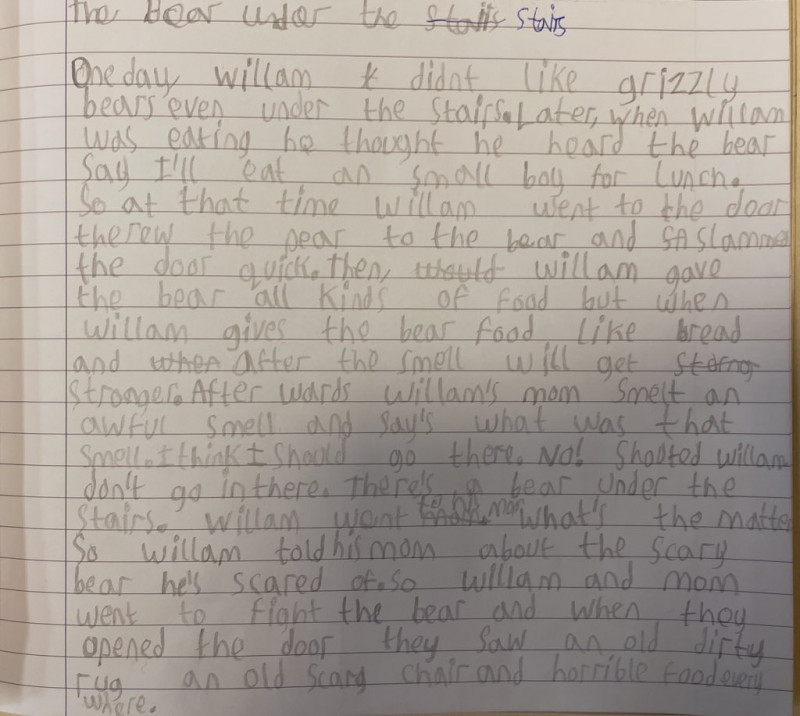 The Bear under the stairs stairs
One day, willam t didnt like grizzly
bears even under the stairs. Later, when willam
was eating he thought he heard the bear
say I'll eat an small boy for lunch.
So at that time willam went to the door
therew the pear to the bear and SA slamme
the door quick. Then, would willam gave
the bear all kinds of food but when
willam gives the bear food like bread
and when after the smell will get
stronger. After wards willam's mom smelt an
awful smell and say's what was that
smell. I think I should go there. No! shooted willam
don't go in there. There's a bear under the
stairs. willam went to mom What's the matte
So willam told his mom about the scary
bear he's scared of. So willam and mom
went to fight the bear and when they
opened the door they saw an old dirty
rug an old scary chair and horrible food every
where.